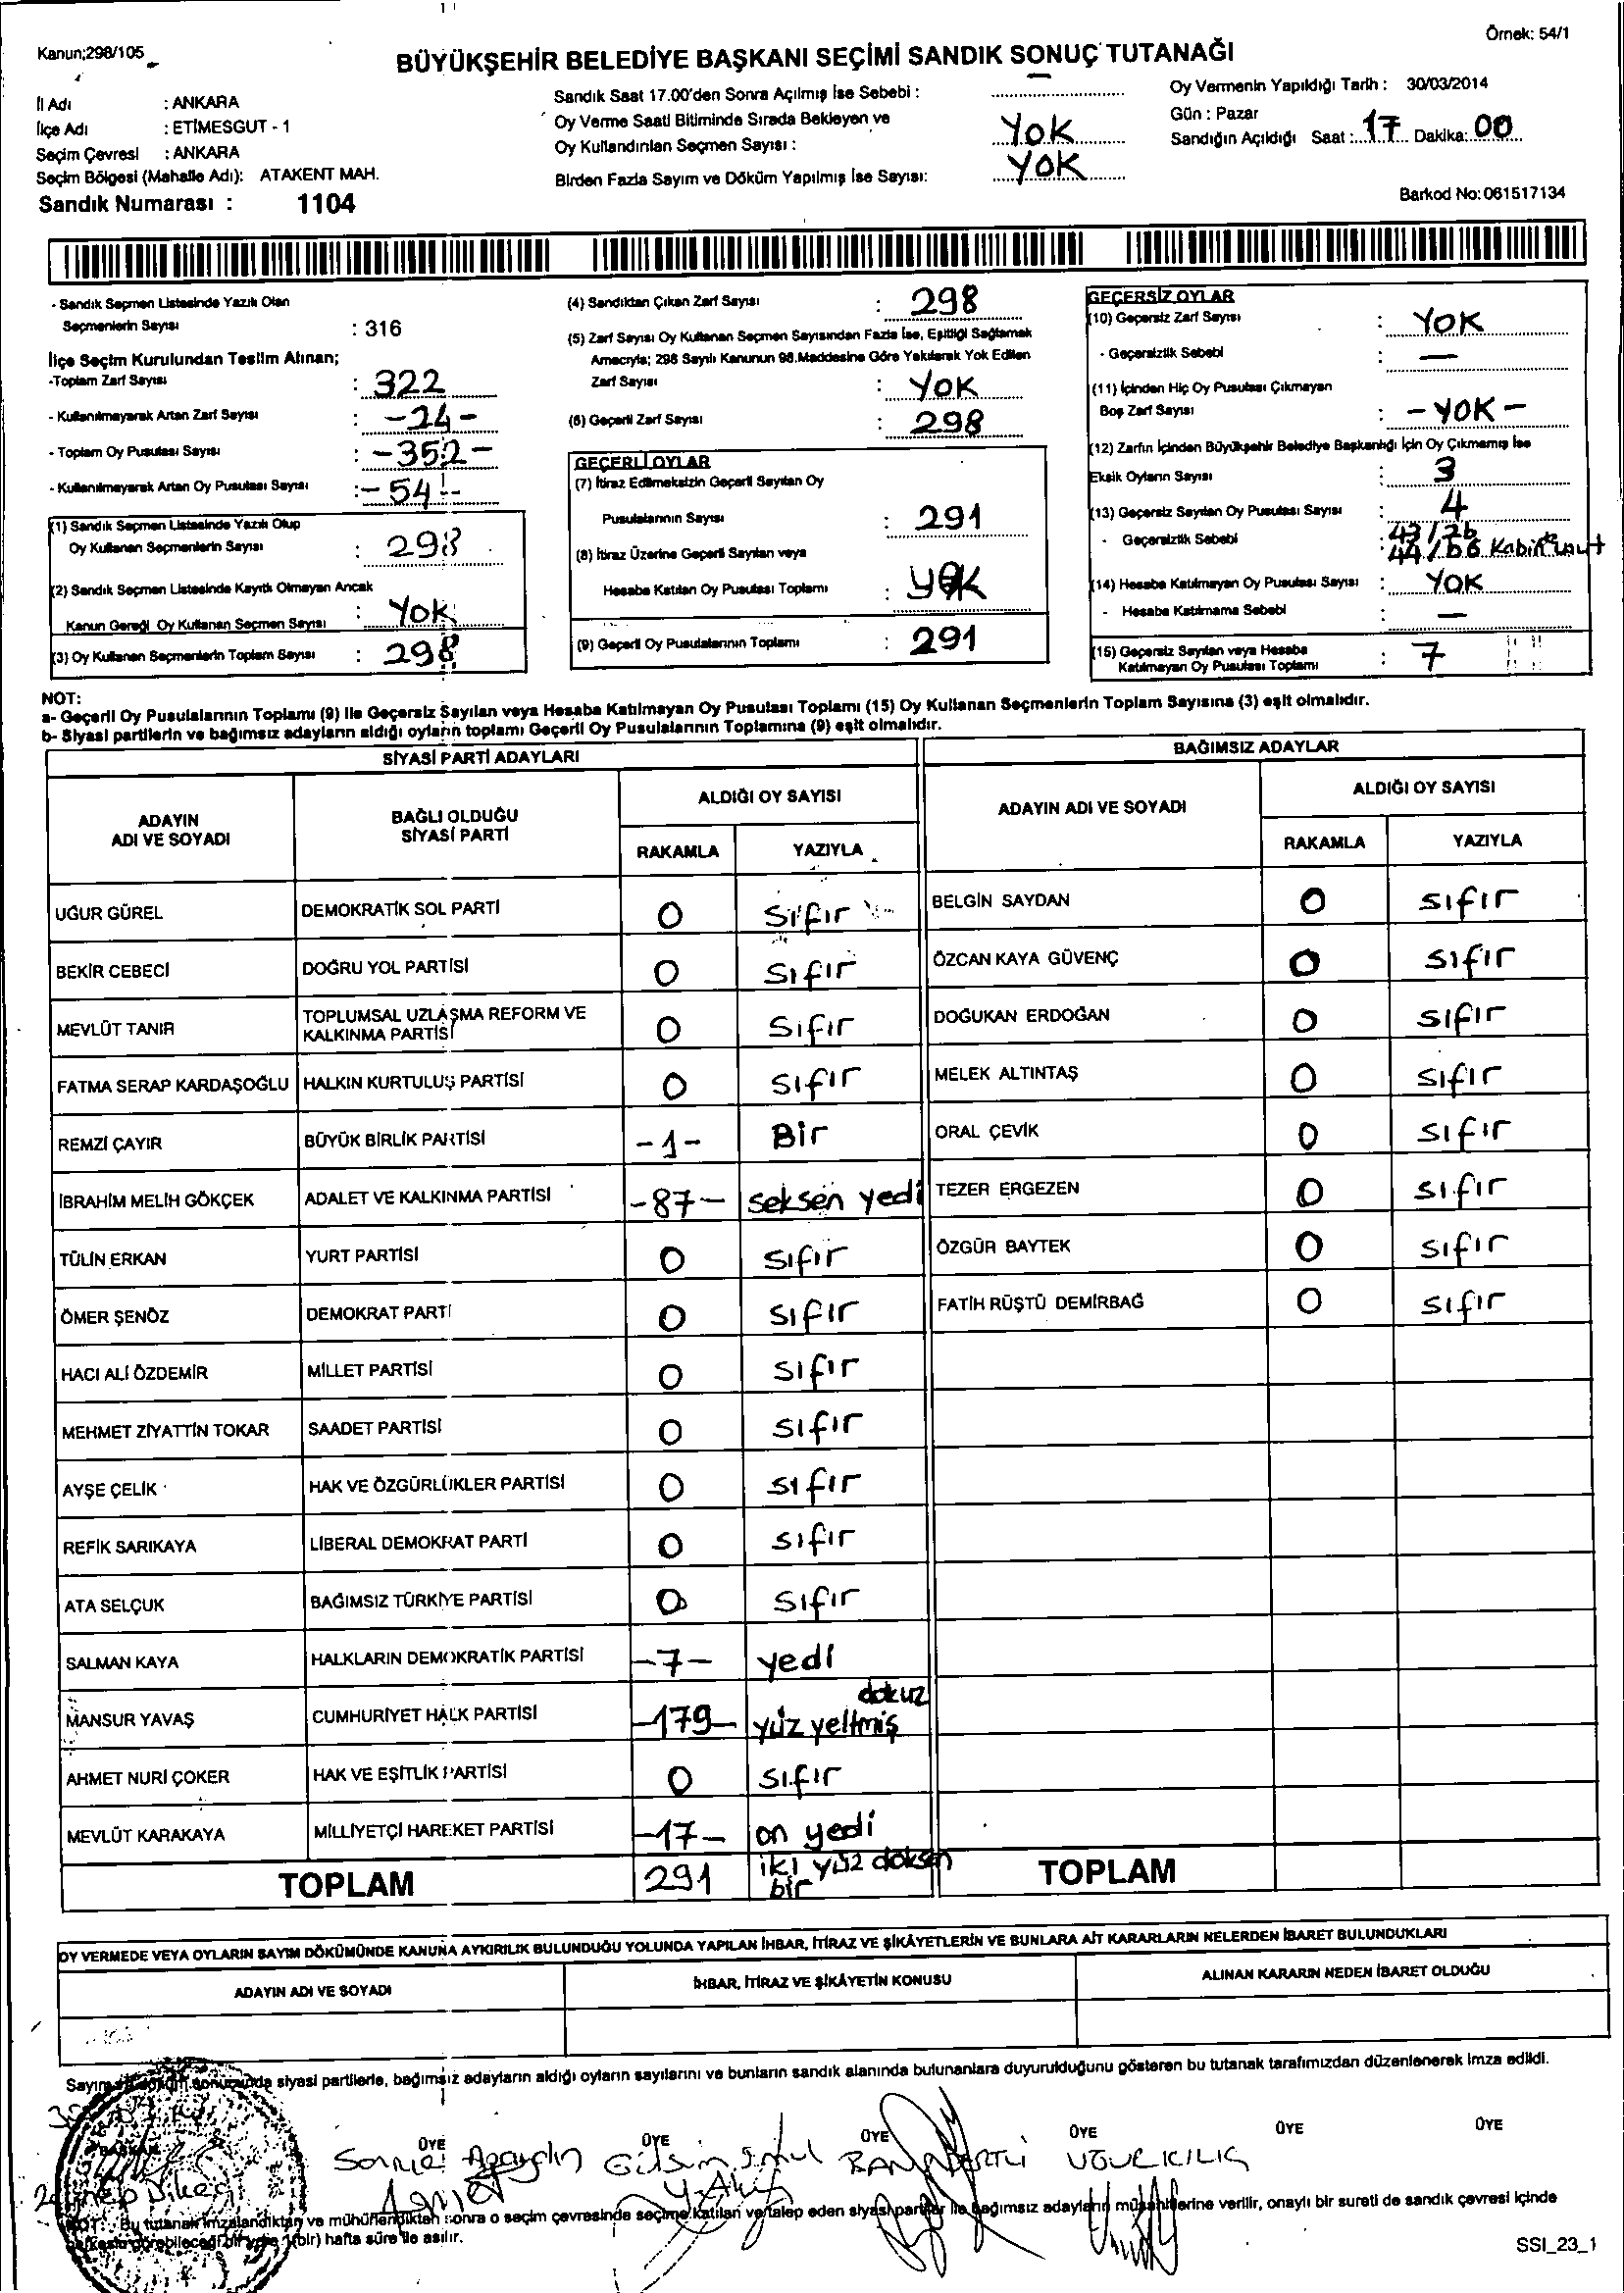 Kanun;298/105
Örnek: 54/1
BÜYÜKŞEHİR BELEDİYE BAŞKANI SEÇİMİ SANDIK SONUÇ TUTANAĞI
İl Adı : ANKARA
İlçe Adı : ETİMESGUT - 1
Seçim Çevresi : ANKARA
Seçim Bölgesi (Mahalle Adı): ATAKENT MAH.
Sandık Numarası : 1104
Sandık Saat 17.00'den Sonra Açılmış İse Sebebi : —
Oy Verme Saati Bitiminde Sırada Bekleyen ve
Oy Kullandırılan Seçmen Sayısı : YOK
Birden Fazla Sayım ve Döküm Yapılmış İse Sayısı: YOK
Oy Vermenin Yapıldığı Tarih : 30/03/2014
Gün : Pazar
Sandığın Açıldığı Saat : 17 Dakika: 00
Barkod No: 061517134
- Sandık Seçmen Listesinde Yazılı Olan
Seçmenlerin Sayısı : 316
İlçe Seçim Kurulundan Teslim Alınan;
-Toplam Zarf Sayısı : 322
- Kullanılmayarak Artan Zarf Sayısı : -24-
- Toplam Oy Pusulası Sayısı : -352-
- Kullanılmayarak Artan Oy Pusulası Sayısı : -54-
(1) Sandık Seçmen Listesinde Yazılı Olup
Oy Kullanan Seçmenlerin Sayısı : 298
(2) Sandık Seçmen Listesinde Kayıtlı Olmayan Ancak
Kanun Gereği Oy Kullanan Seçmen Sayısı : YOK
(3) Oy Kullanan Seçmenlerin Toplam Sayısı : 298
(4) Sandıktan Çıkan Zarf Sayısı : 298
(5) Zarf Sayısı Oy Kullanan Seçmen Sayısından Fazla İse, Eşitliği Sağlamak
Amacıyla; 298 Sayılı Kanunun 98.Maddesine Göre Yakılarak Yok Edilen
Zarf Sayısı : YOK
(6) Geçerli Zarf Sayısı : 298
GEÇERLİ OYLAR
(7) İtiraz Edilmeksizin Geçerli Sayılan Oy
Pusulalarının Sayısı : 291
(8) İtiraz Üzerine Geçerli Sayılan veya
Hesaba Katılan Oy Pusulası Toplamı : YOK
(9) Geçerli Oy Pusulalarının Toplamı : 291
GEÇERSİZ OYLAR
(10) Geçersiz Zarf Sayısı : YOK
- Geçersizlik Sebebi : —
(11) İçinden Hiç Oy Pusulası Çıkmayan
Boş Zarf Sayısı : - YOK -
(12) Zarfın İçinden Büyükşehir Belediye Başkanlığı İçin Oy Çıkmamış İse
Eksik Oyların Sayısı : 3
(13) Geçersiz Sayılan Oy Pusulası Sayısı : 4
- Geçersizlik Sebebi :
(14) Hesaba Katılmayan Oy Pusulası Sayısı : YOK
- Hesaba Katılmama Sebebi : —
(15) Geçersiz Sayılan veya Hesaba
Katılmayan Oy Pusulası Toplamı : 7
NOT:
a- Geçerli Oy Pusulalarının Toplamı (9) ile Geçersiz Sayılan veya Hesaba Katılmayan Oy Pusulası Toplamı (15) Oy Kullanan Seçmenlerin Toplam Sayısına (3) eşit olmalıdır.
b- Siyasi partilerin ve bağımsız adayların aldığı oyların toplamı Geçerli Oy Pusulalarının Toplamına (9) eşit olmalıdır.
SİYASİ PARTİ ADAYLARI
ADAYIN ADI VE SOYADI BAĞLI OLDUĞU SİYASİ PARTİ ALDIĞI OY SAYISI
RAKAMLA YAZIYLA
UĞUR GÜREL DEMOKRATİK SOL PARTİ 0 Sıfır
BEKİR CEBECİ DOĞRU YOL PARTİSİ 0 Sıfır
MEVLÜT TANIR TOPLUMSAL UZLAŞMA REFORM VE KALKINMA PARTİSİ 0 Sıfır
FATMA SERAP KARDAŞOĞLU HALKIN KURTULUŞ PARTİSİ 0 Sıfır
REMZİ ÇAYIR BÜYÜK BİRLİK PARTİSİ -1- Bir
İBRAHİM MELİH GÖKÇEK ADALET VE KALKINMA PARTİSİ -87- seksen yedi
TÜLİN ERKAN YURT PARTİSİ 0 Sıfır
ÖMER ŞENÖZ DEMOKRAT PARTİ 0 Sıfır
HACI ALİ ÖZDEMİR MİLLET PARTİSİ 0 Sıfır
MEHMET ZİYATTİN TOKAR SAADET PARTİSİ 0 Sıfır
AYŞE ÇELİK HAK VE ÖZGÜRLÜKLER PARTİSİ 0 Sıfır
REFİK SARIKAYA LİBERAL DEMOKRAT PARTİ 0 Sıfır
ATA SELÇUK BAĞIMSIZ TÜRKİYE PARTİSİ 0 Sıfır
SALMAN KAYA HALKLARIN DEMOKRATİK PARTİSİ -7- yedi
MANSUR YAVAŞ CUMHURİYET HALK PARTİSİ -179- yüz yeltmiş dokuz
AHMET NURİ ÇOKER HAK VE EŞİTLİK PARTİSİ 0 Sıfır
MEVLÜT KARAKAYA MİLLİYETÇİ HAREKET PARTİSİ -17- on yedi
TOPLAM 291 iki yüz doksan bir
BAĞIMSIZ ADAYLAR
ADAYIN ADI VE SOYADI ALDIĞI OY SAYISI
RAKAMLA YAZIYLA
BELGİN SAYDAN 0 Sıfır
ÖZCAN KAYA GÜVENÇ 0 Sıfır
DOĞUKAN ERDOĞAN 0 Sıfır
MELEK ALTINTAŞ 0 Sıfır
ORAL ÇEVİK 0 Sıfır
TEZER ERGEZEN 0 Sıfır
ÖZGÜR BAYTEK 0 Sıfır
FATİH RÜŞTÜ DEMİRBAĞ 0 Sıfır
TOPLAM
OY VERMEDE VEYA OYLARIN SAYIM DÖKÜMÜNDE KANUNA AYKIRILIK BULUNDUĞU YOLUNDA YAPILAN İHBAR, İTİRAZ VE ŞİKÂYETLERİN VE BUNLARA AİT KARARLARIN NELERDEN İBARET BULUNDUKLARI
ADAYIN ADI VE SOYADI İHBAR, İTİRAZ VE ŞİKÂYETİN KONUSU ALINAN KARARIN NEDEN İBARET OLDUĞU
siyasi partilerle, bağımsız adayların aldığı oyların sayılarını ve bunların sandık alanında bulunanlara duyurulduğunu gösteren bu tutanak tarafımızdan düzenlenerek imza edildi.
BAŞKAN ÜYE ÜYE ÜYE ÜYE ÜYE ÜYE
UĞUR KILIÇ
NOT: Bu tutanak imzalandıktan ve mühürlendikten sonra o seçim çevresinde seçime katılan ve talep eden siyasi partiler ile bağımsız adayların müşahitlerine verilir, onaylı bir sureti de sandık çevresi içinde
herkesin görebileceği bir yere 1(bir) hafta süre ile asılır.
SSI_23_1